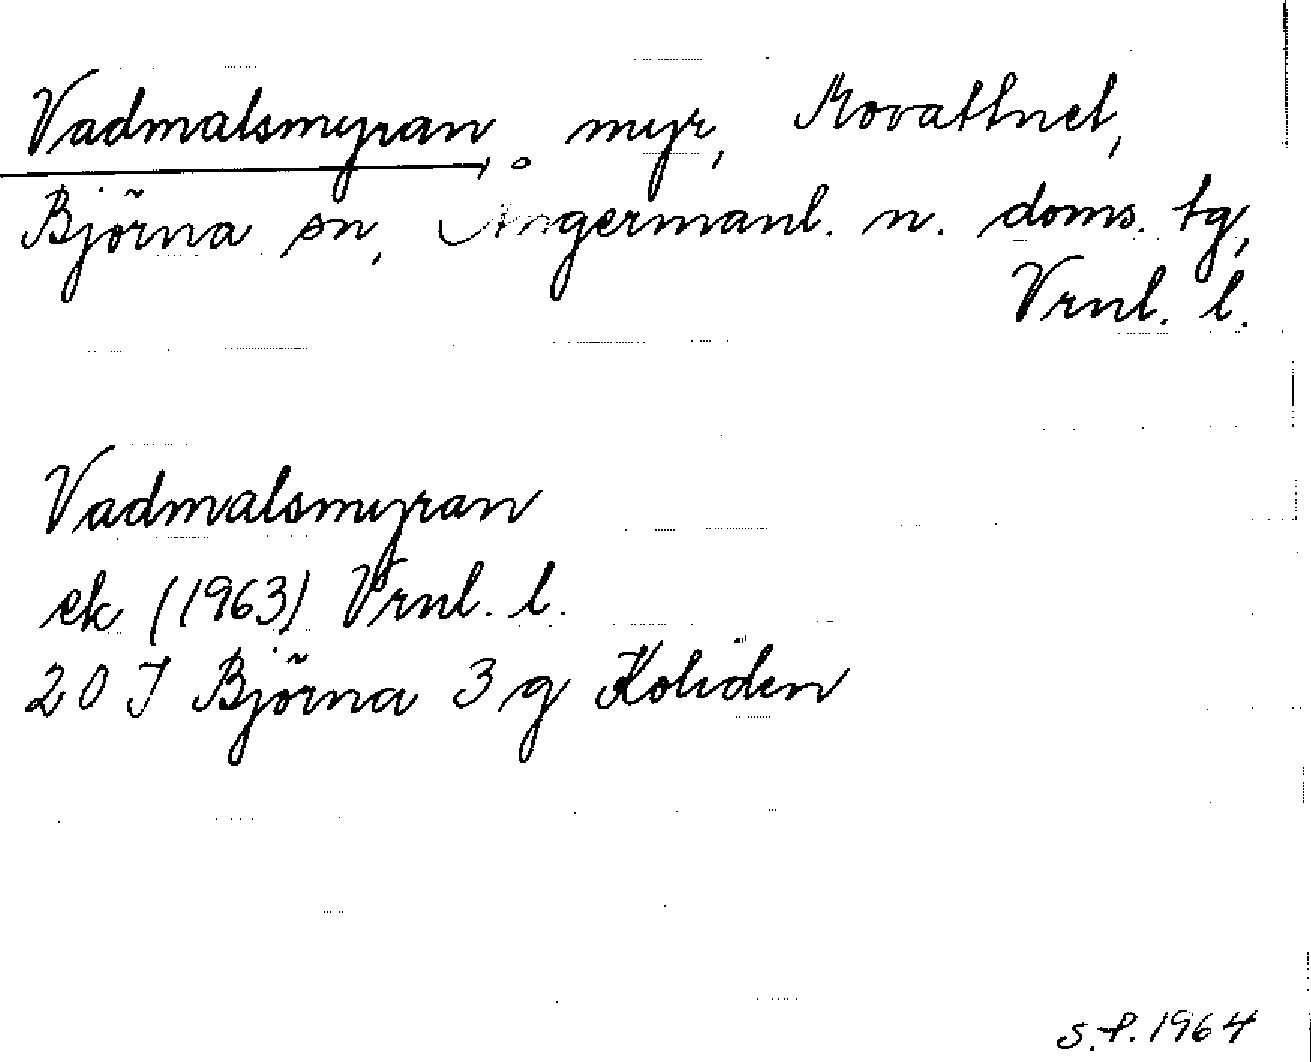 Vadmalsmyran, myr, Movattnet,
Björna sn, Ångermanl. n. doms. tg,
Vrnl. l.
Vadmalsmyran
ek (1963) Vrnl. l.
20 J Björna 3 g Koliden
S.P. 1964